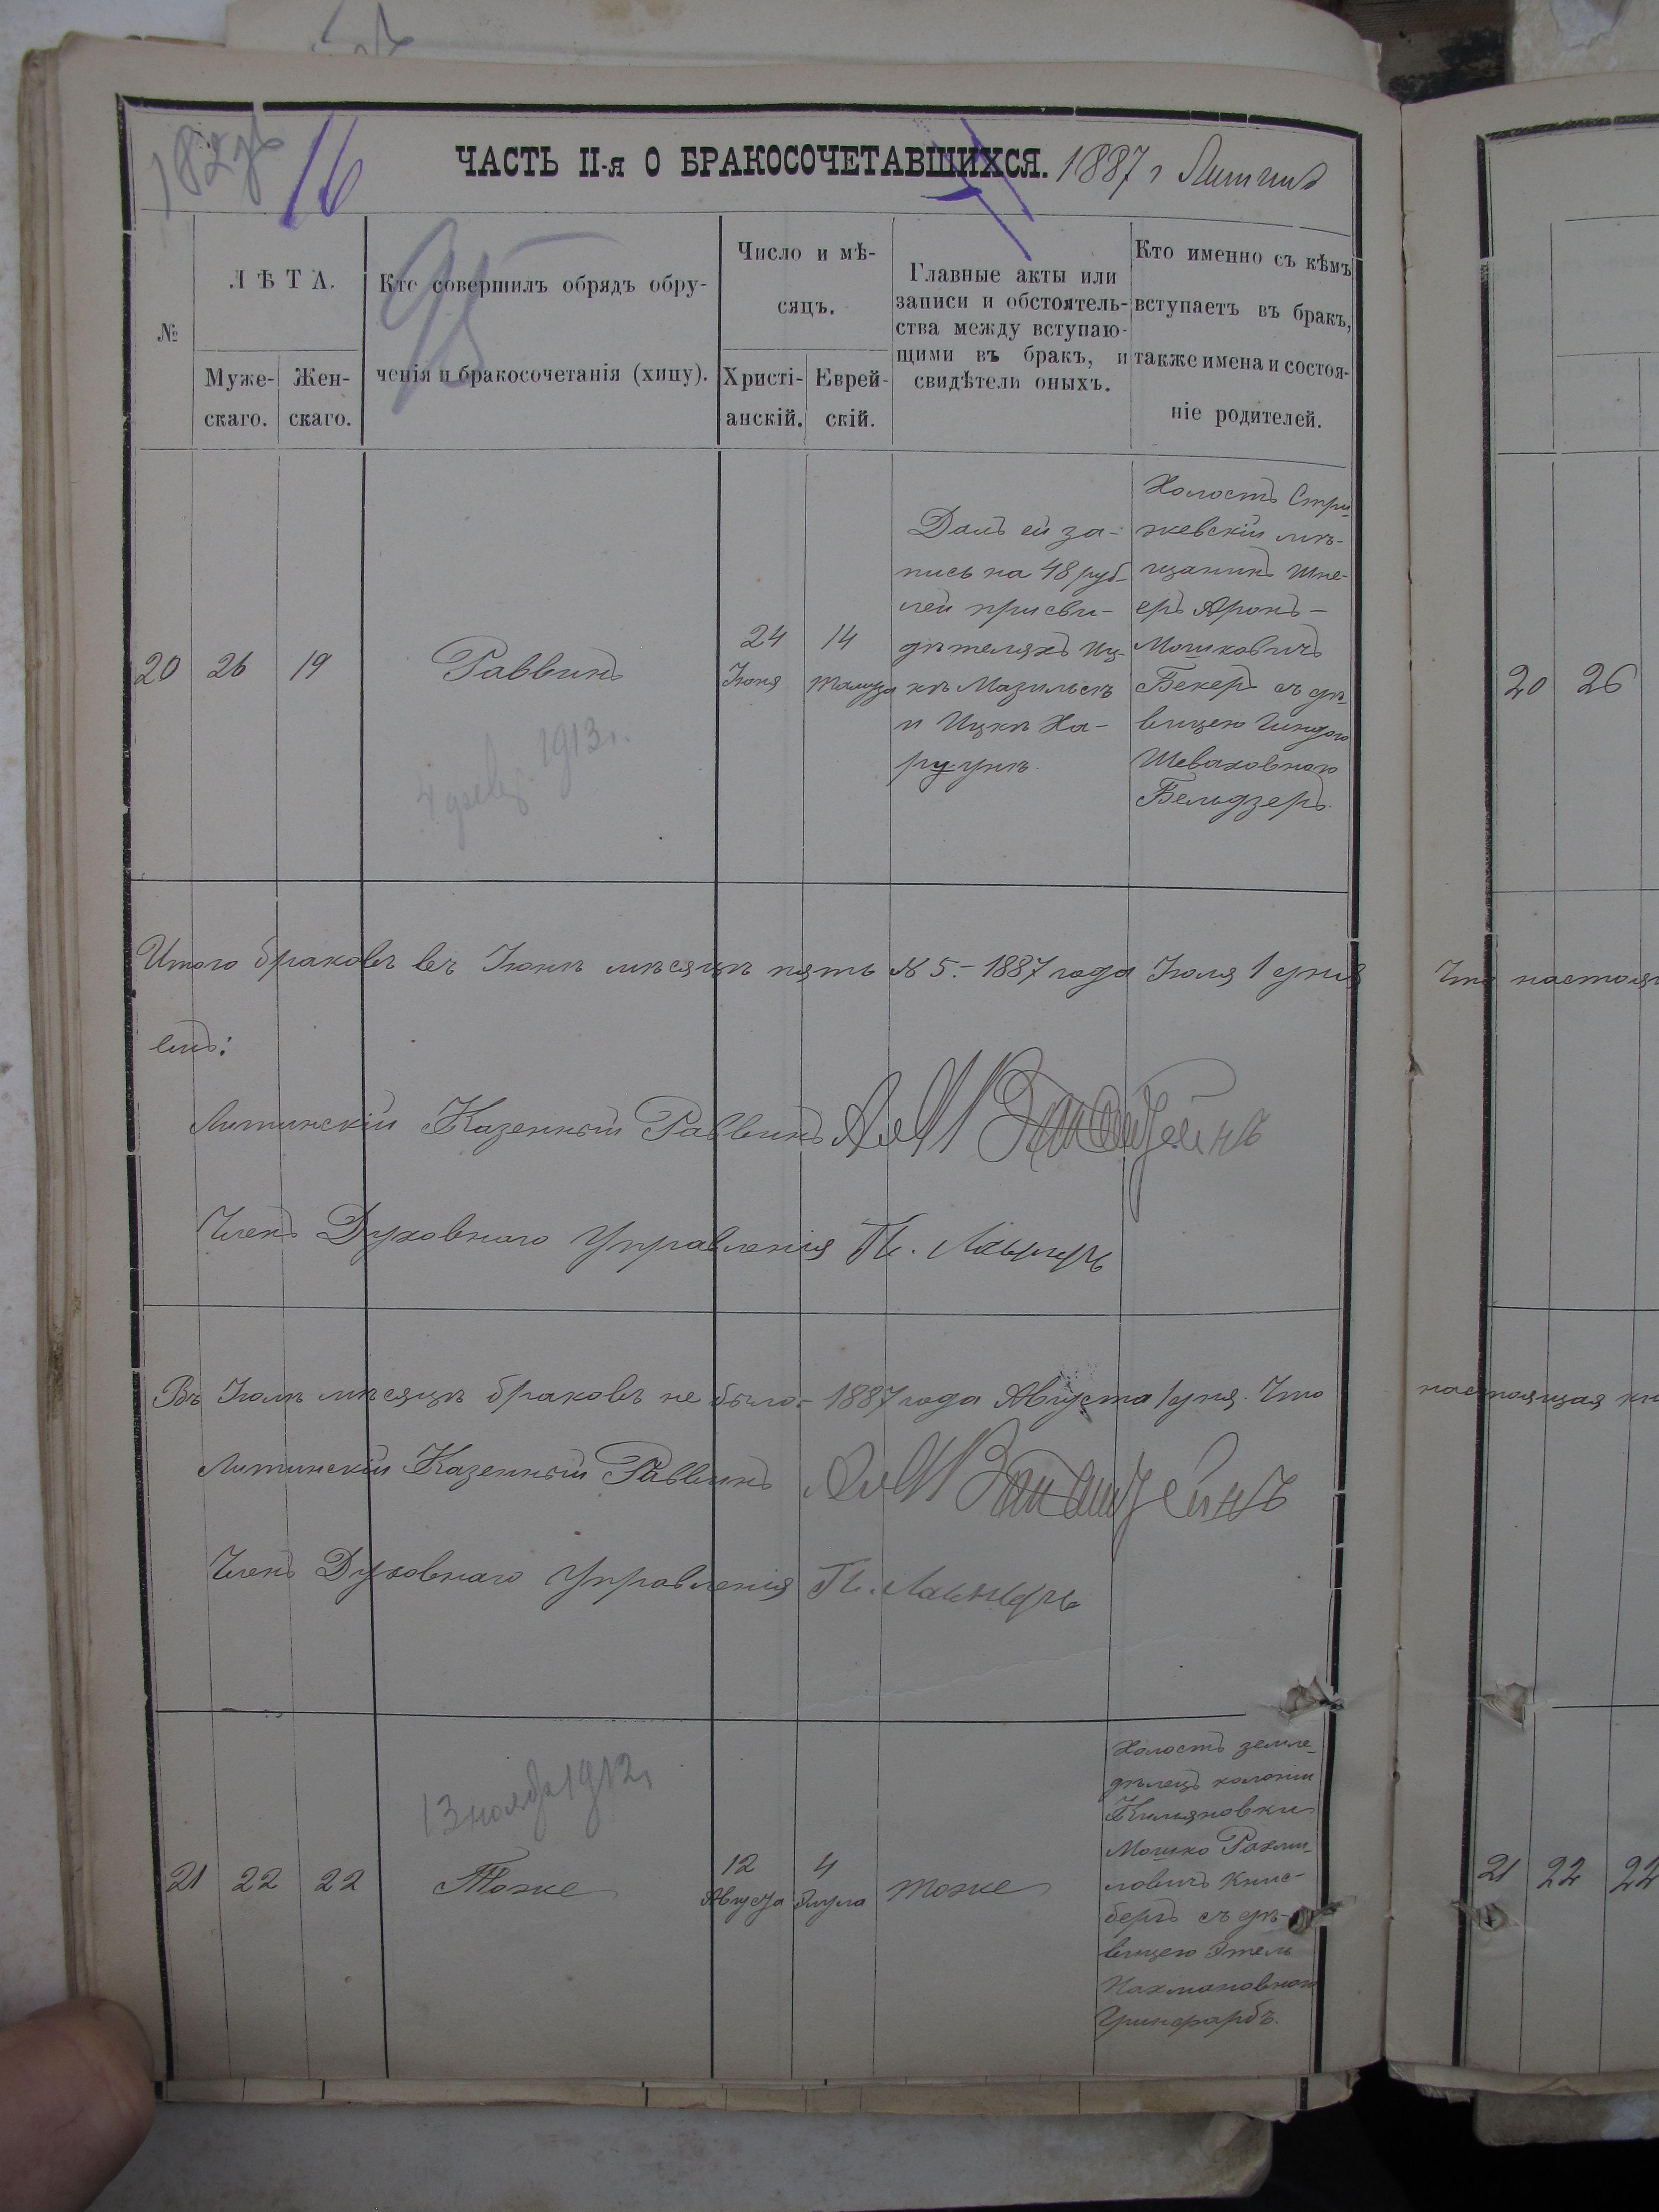 16
ЧАСТЬ II-я О БРАКОСОЧЕТАВШИХСЯ. 1887 г Литинъ
95
№
ЛѢТА.
Муже-
скаго.
Жен-
скаго.
Кто совершилъ обрядъ обру-
ченія и бракосочетанія (хипу).
Число и мѣ-
сяцъ.
Христі-
анскій.
Еврей-
скій.
Главные акты или
записи и обстоятель-
ства между вступаю-
щими въ бракъ, и
свидѣтели оныхъ.
Кто именно съ кѣмъ
вступаетъ въ бракъ,
также имена и состоя-
ніе родителей.
20
26
19
Раввинъ
24
Іюня
14
Тамуза
Далъ ей за-
пись на 48 руб-
лей при сви-
дѣтеляхъ Иц-
кѣ Мазильскѣ
и Ицкѣ Ха-
Холостъ Стри-
жевскій мѣ-
щанинъ Шне-
еръ Аронъ-
Мошковичъ
Бекеръ съ дѣ-
вицею Гиндою
Шеваховною
Бельдзеръ.
4 1913 г.
Итого браковъ въ Іюнѣ мѣсяцѣ пять № 5.- 1887 года Іюля 1 дня
Литинскій Казенный Раввинъ
Членъ Духовнаго Управленія
Въ Іюлѣ мѣсяцѣ браковъ не было.- 1887 года Августа 1 дня. Что
Литинскій Казенный Раввинъ
Членъ Духовнаго Управленія
13 ноября 1912 г
21
22
22
Тоже
12
Августа
4
Элула
Тоже
Холостъ земле-
дѣлецъ колоніи
Кильяновки
Мошко Рахми-
ловичъ Книс-
бергъ съ дѣ-
вицею Этель
Нахмановною
Гринфарбъ.
20
26
Что настоя
настоящая кн
21
22
22